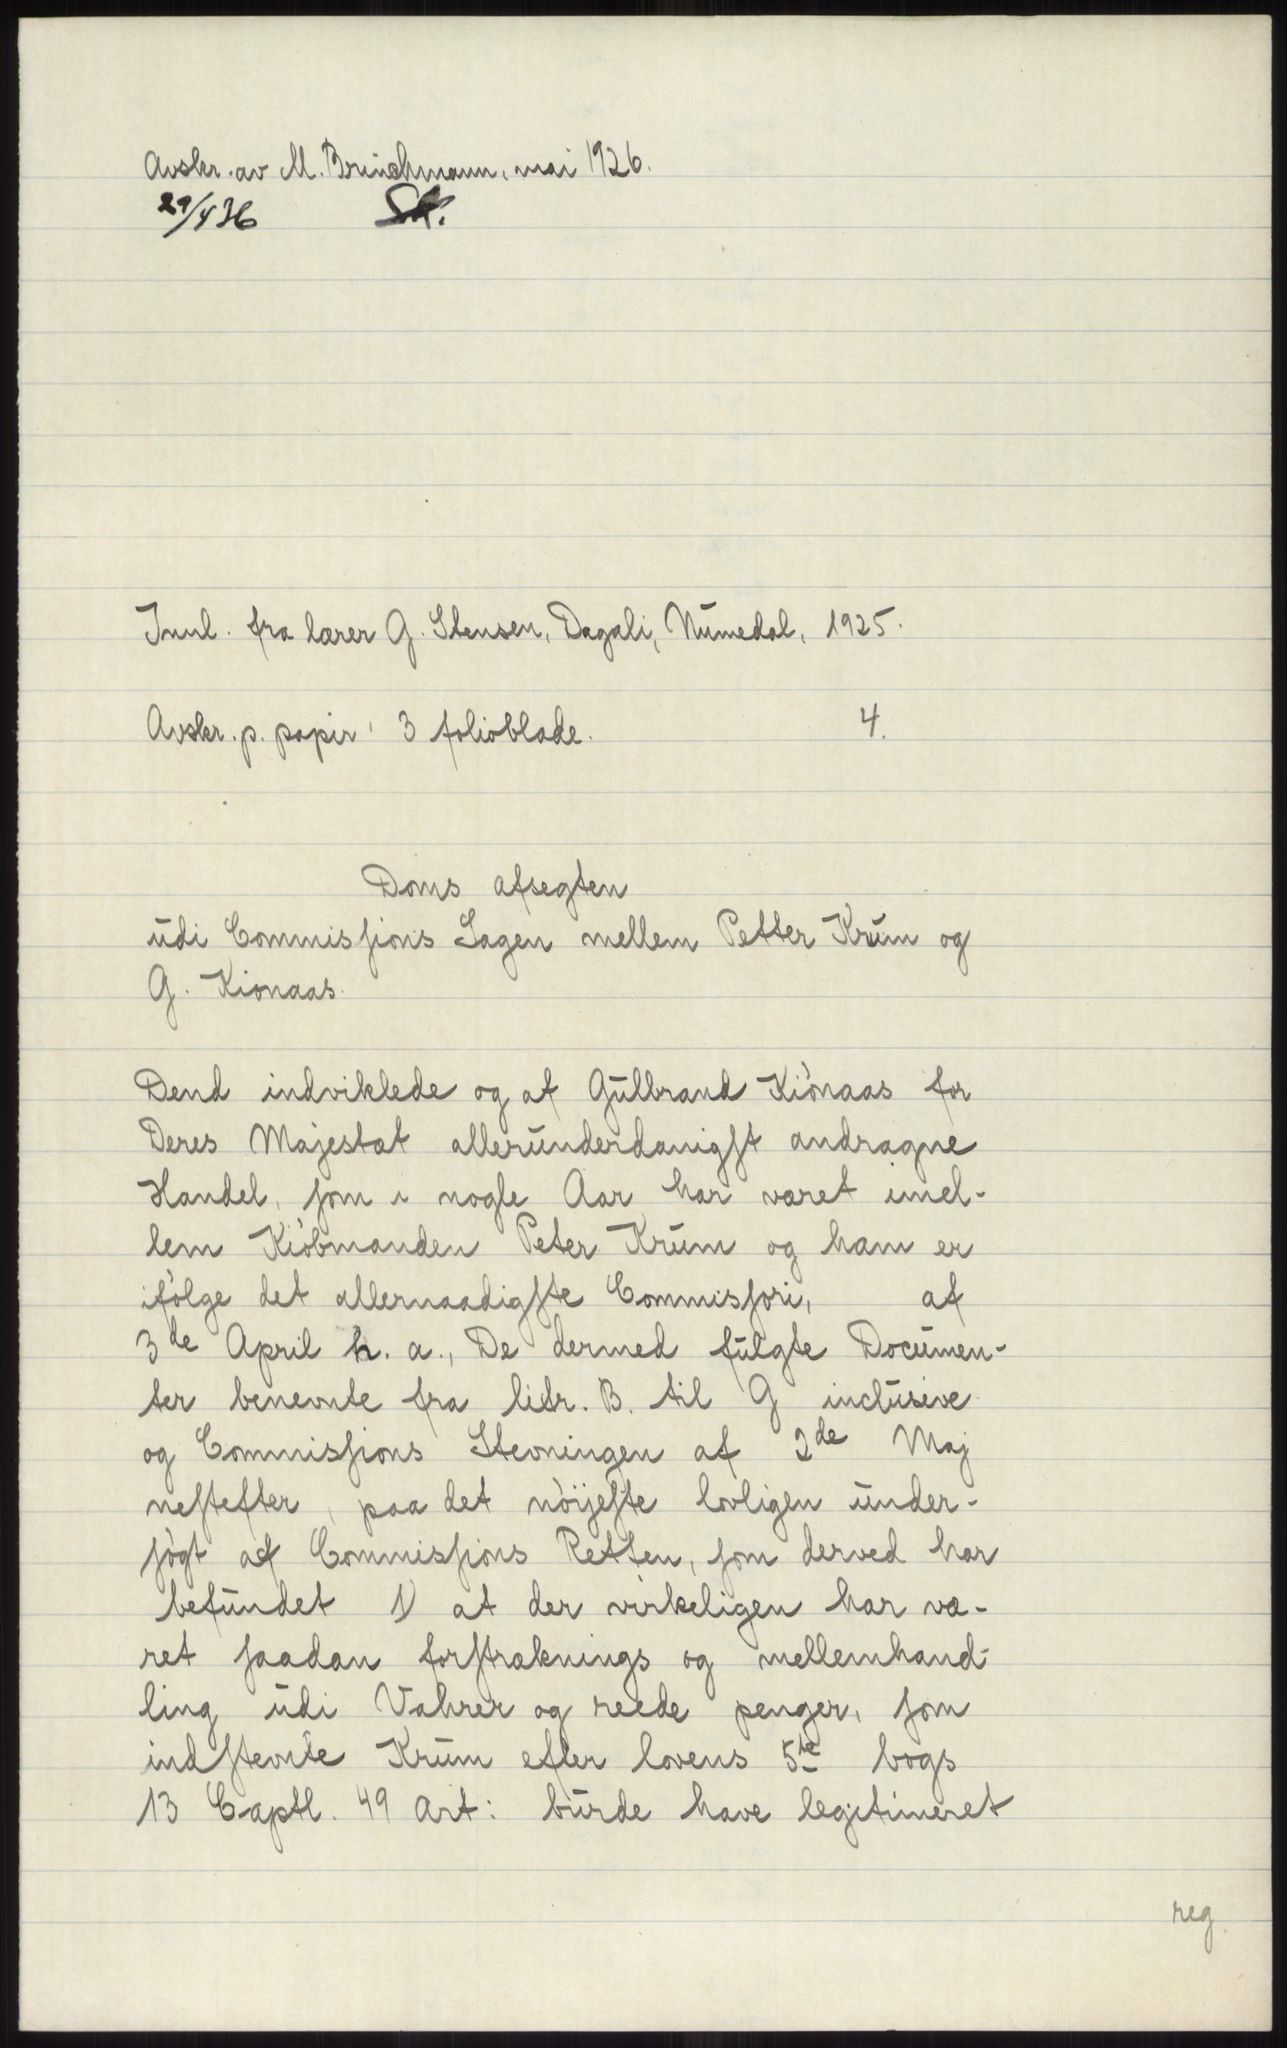 Avskr. av M. Brinchmann, mai 1926.
29/4 36 Sk.
Innl. fra lærer G. Stensen, Dagali, Numedal, 1925.
Avskr. p. papir, 3 folioblade. 4.
Doms afsegten
udi Commissions Sagen mellem Petter Krum og
G. Kiønaas.
Dend indviklede og af Gulbrand Kiønaas for
Deres Majestæt allerunderdanigst andragne
Handel, som i nogle Aar har været imel-
lem Kiøbmanden Peter Krum og ham er
ifølge det allernaadigste Commissori, af
3de April h. a., De dermed fulgte Documen-
ter benevnte fra litr. B. til G inclusive
og Commissions Stevningen af 2de Maj
nestefter, paa det nøijeste lovligen under-
søgt af Commissions Retten, som derved har
befundet 1) at der virkeligen har væ-
ret saadan forstræknings og mellemhand-
ling udi Vahrer og reede penger, som
indstevnte Krum efter lovens 5te bogs
13 Captl. 49 Art: burde have legitimeret
reg.